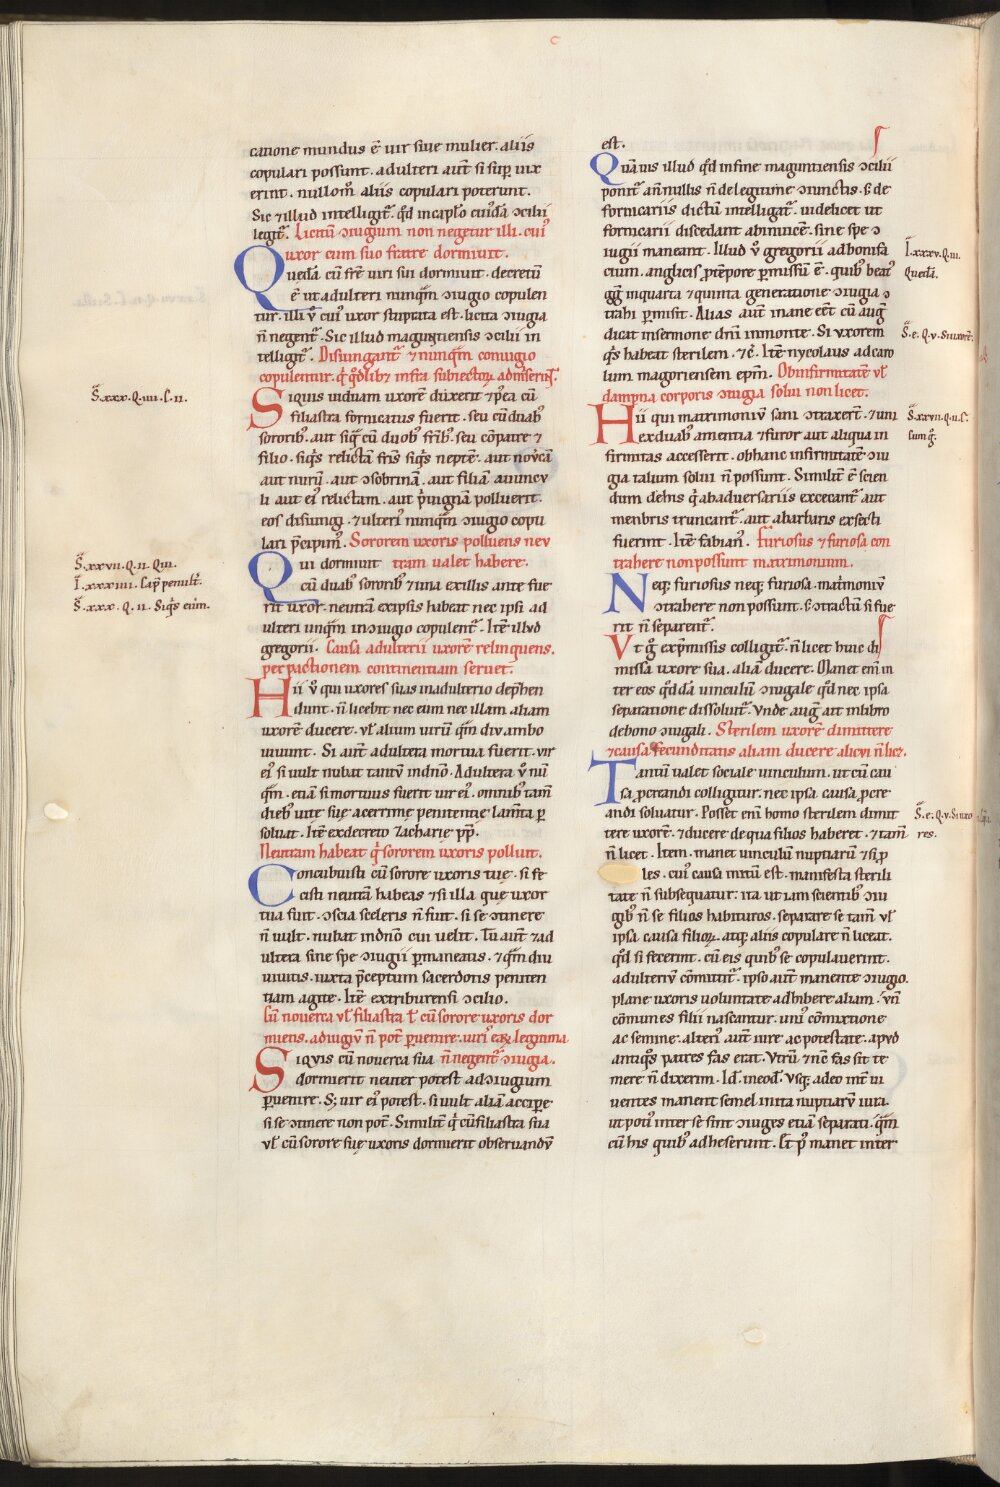 c
catione mundus ē uir siue mulier. aliis
copulari possunt. adulteri aut̄ si sup̄ uix
erint. nullom̄ aliis copulari poterunt.
Sic ⁊ illud intelligit᷑. qd̄ in capl̄o cuiꝰdā ɔcilii
legit᷑. Licitū ɔiugium non negetur illi. cuiꝰ
uxor cum suo fratre dormiuit.
Quedā cū fr̄e uiri sui dormiuit. decretū
ē ut adulteri nunqm̄ ɔiugio copulen
tur. illi ꝟ cuiꝰ uxor stuprata est. licita ɔiugia
n̄ negent᷑. Sic illud maguntiensis ɔcilii in
telligit᷑. Disiungant᷑ ⁊ nunqm̄ coniugio
copulentur. q̇ qōlibꝫ infra subiectoꝝ admiserit.
Siquis uiduam uxorē duxerit ⁊ p̄ea cū
filiastra fornicatus fuerit. seu cū duabꝰ
sororibꝰ. aut siq̇ cū duobꝰ fr̄ibꝰ. seu cōpatre ⁊
filio. siq̇s relictā fr̄is siq̇s neptē. aut nouercā
aut nurū. aut ɔsobrinā. aut filiam auuncu
li aut eiꝰ relictam. aut ṗuignā polluerit.
eos disiungi. ⁊ ulteriꝰ nunqm̄ ɔiugio copu
lari p̄cipimꝰ. Sororem uxoris polluens neu
Qui dormiuit tram ualet habere.
cū duabꝰ sororibꝰ ⁊ una ex illis ante fue
rit uxor. neutrā ex ipsis habeat nec ipsi ad
ulteri unqm̄ in ɔiugio copulent᷑. Itē illud
gregorii. Causa adulterii uxorē relinquens.
per pactionem continentiam seruet.
Hii ꝟ qui uxores suas in adulterio dep̄hen
dunt. n̄ licebit nec eum nec illam aliam
uxorē ducere. ul̄ alium uirū qm̄ diu ambo
uiuunt. Si aut̄ adultera mortua fuerit. uir
eiꝰ si uult nubat tantū in dnō. Adultera ꝟ nū
qm̄. etiā si mortuus fuerit uir eiꝰ. omnibꝰ tam̄
diebꝰ uite sue acerrime penitentie lam̄ta ꝑ
soluat. Itē ex decreto Zacharie pp̄.
Neutram habeat q̇ sororem uxoris polluit.
Concubuisti cū sorore uxoris tue. si fe
cisti neutrā habeas ⁊ si illa que uxor
tua fuit. ɔscia sceleris n̄ fuit. si se ɔtinere
n̄ uult. nubat in dnō cui uelit. Tu aut̄ ⁊ ad
ultera sine spe ɔiugii ꝑmaneatis. ⁊ qm̄ diu
uiuitis. iuxta p̄ceptum sacerdotis peniten
tiam agite. Itē ex triburensi ɔcilio.
Cū nouerca ul̄ filiastra ł cū sorore uxoris dor
miens. ad ɔiugiū n̄ pot̄ ꝑuenire. uiri eaꝝ legitima
Siquis cū nouerca sua n̄ negent᷑ ɔiugia.
dormierit neuter potest ad ɔiugium
ꝑuenire. Sꝫ uir eiꝰ potest. si uult aliā accipe
si se ɔtinere non pot̄. Similit̄ q̇ cū filiastra sua
ul̄ cū sorore sue uxoris dormierit obseruandū
est.
Quāuis illud qd̄ in fine maguntiensis ɔcilii
ponit᷑ a nōnullis n̄ de legitime ɔiunctis. sꝫ de
fornicariis dictū intelligat᷑. uidelicet ut
fornicarii discedant abinuicē. sine spe ɔ
iugii maneant. Illud ꝟ gregorii ad bonifa
cium. anglicis ꝓ tempore ꝑmissū ē. quibꝰ beatꝰ
gg̃ in quarta ⁊ quinta generatione ɔiugia ɔ
trahi ꝑmisit. Alias aut̄ inane eēt cū aug̃
dicat in sermone dnī in monte. Si uxorem
q̇s habeat sterilem. ⁊c̄. Itē nycolaus ad caro
lum magoriensem ep̄m. Ob infirmitatē ul̄
dampna corporis ɔiugia solui non licet.
Hii qui matrimoniū sani ɔtraxert̄. ⁊ uni
ex duabꝰ amentia ⁊ furor aut aliqua in
firmitas accesserit. ob hanc infirmitatē ɔiu
gia talium solui n̄ possunt. Similit̄ ē scien
dum de his q̇ ab aduersariis excecant᷑ aut
menbris truncant᷑. aut a barbaris exsecti
fuerint. Itē fabianꝰ. Furiosus ⁊ furiosa con
trahere non possunt matrimonium.
Neqꝫ furiosus neqꝫ furiosa. matrimoniū
ɔtrahere non possunt. sꝫ ɔtractū si fue
rit n̄ separent᷑.
Vt g̊ ex p̄missis colligit᷑. n̄ licet huic di
missa uxore sua. aliā ducere. Manet eni᷑ in
ter eos q̊ddā uinculū ɔiugale qd̄ nec ipsa
separatione dissoluit᷑. Vnde aug̃ ait in libro
de bono ɔiugali. Sterilem uxorē dimittere
⁊ causa fecunditatis aliam ducere alicui n̄ licꝫ.
Tantū ualet sociale uinculum. ut cū cau
sa ꝓcreandi colligitur. nec ipsa causa ꝓcre
andi soluatur. Posset eni᷑ homo sterilem dimit
tere uxorē. ⁊ ducere de qua filios haberet. ⁊ tam̄
n̄ licet. Item. manet uinculū nuptiarū ⁊ si ꝓ
les. cuiꝰ causa initū est. manifesta sterili
tate n̄ subsequatur. ita ut iam scientibꝰ ɔiu
gibꝰ n̄ se filios habituros. separare se tam̄ ul̄
ipsa causa filioꝝ. atqꝫ aliis copulare n̄ liceat.
qd̄ si fecerint. cū eis quibꝰ se copulauerint.
adulteriū cōmittūt᷑. ipso aut̄ manente ɔiugio.
plane uxoris uoluntate adhibere aliam. un̄
cōmunes filii nascantur. uniꝰ cōmixtione
ac semine. alteriꝰ aut̄ iure ac potestate. apud
antiqꝰs patres fas erat. Vtrū ⁊ nc̄ fas sit te
mere n̄ dixerim. Id̄. in eod̄. Vsqꝫ adeo int̄ ui
uentes manent semel inita nuptiarū iura.
ut potiꝰ inter se sint ɔiuges etiā separati. qm̄
cū his quibꝰ adheserunt. Itē ꝑ manet inter
S̄. xxx. Q. iiii. c̄. ii.
S̄. xxvii. Q. ii. Qui.
I. xxxiiii. Cap̄ penult̄.
S̄. xxx. Q. ii. Siq̇s cum.
I. xxxv. Q. iii.
Quedā.
S̄. e. Q. v. Si uxorē.
S̄. xxvii. Q. ii. c̄.
S̄. e. Q. v. Si uxo
res.